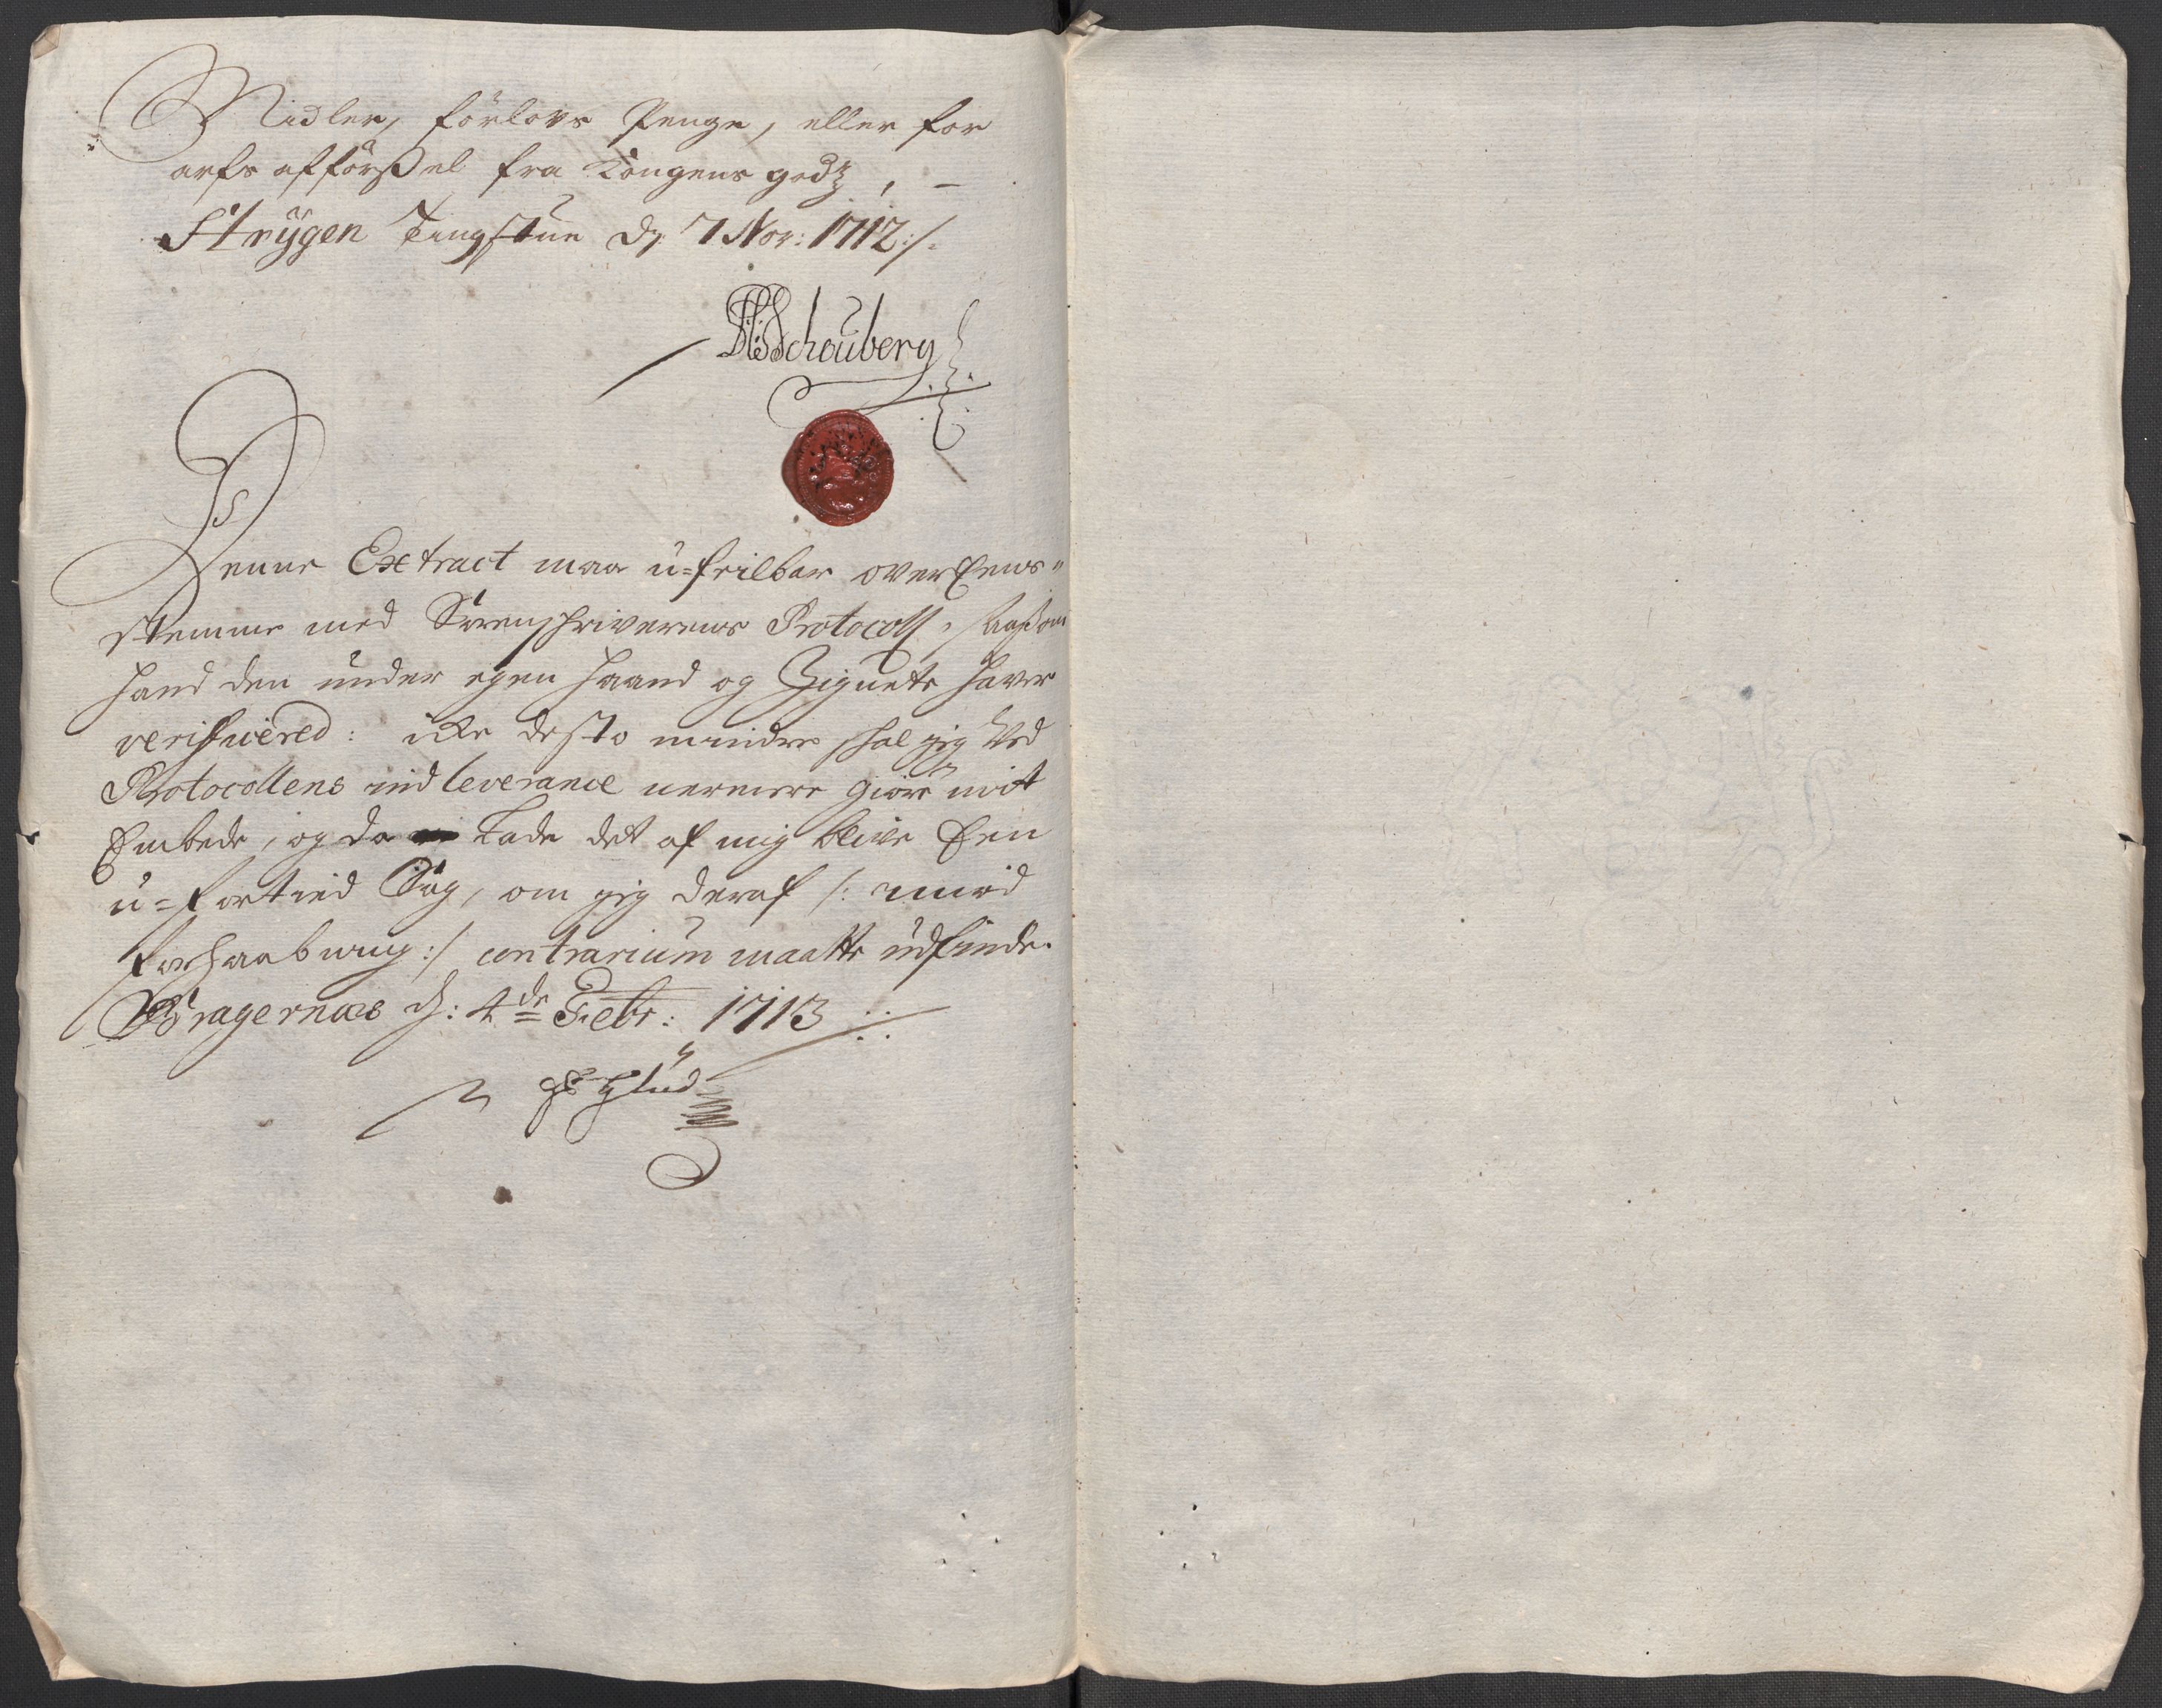 Midler, förlovs Penge, eller for
arfs afförßel fra Kongens godtz, -
Strÿgen Tingstue d. 7 Nov: 1712:/.
Schouberg
Denne Extract maa u=feilbar overEens=
stemme med Sorenskriverens Protocoll, saasom
hand den under egen haand og Zignete haver
verificered: icke desto mindre skal jeg ved
Protocollens indleverance nermere giøre mit
Embede, og da Lade det af mig blive Een
u=fortied Sag, om jeg deraf /: imod
forhaabning :/ contrarium maatte udfinde.
Bragernæs d: 4de Febr: 1713
Glud